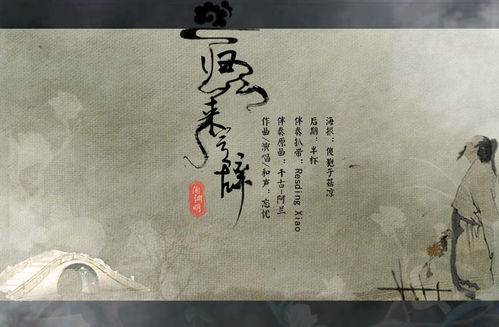 归去来兮辞
陶渊明
海报：傻狍子菇凉
后期：半杯
伴奏扒带：Resding Xiao
伴奏原曲：千古-阿兰
作曲/演唱/和声：忘忧